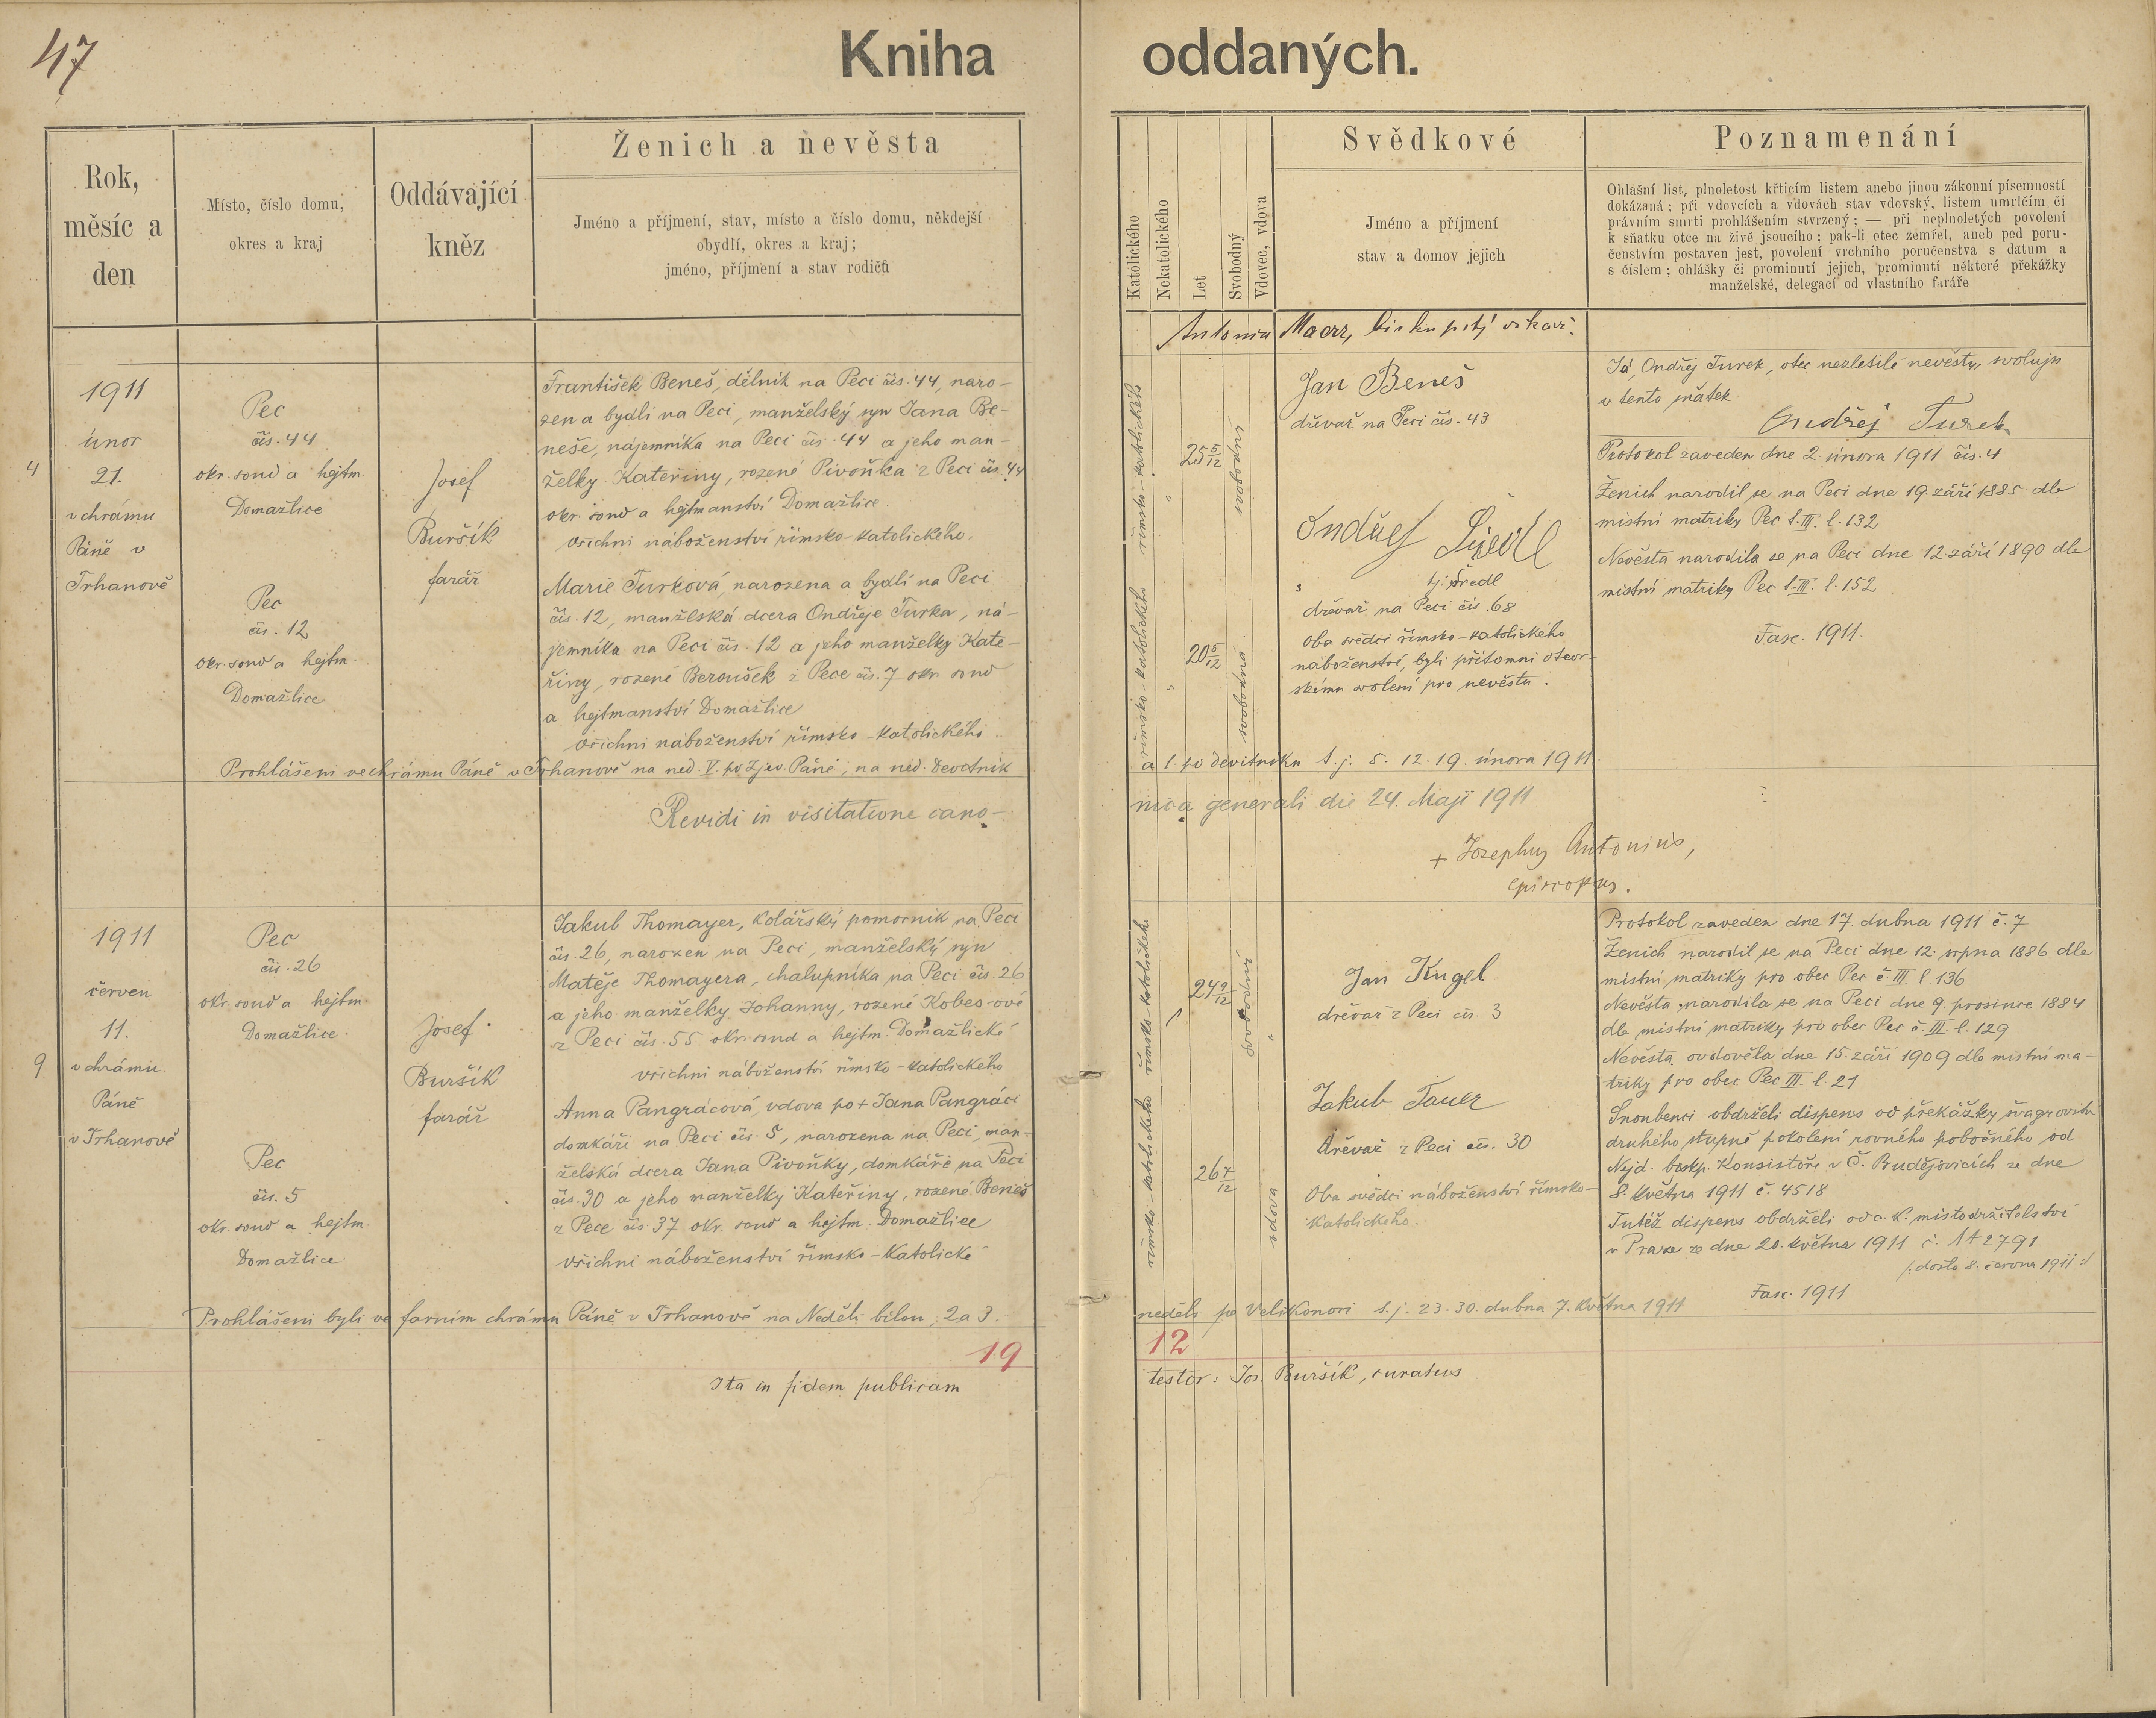 47
Kniha oddaných.
Rok, měsíc a den
Místo, číslo domu, okres a kraj
Oddávající kněz
Ženich a nevěsta
Jméno a příjmení, stav, místo a číslo domu, někdejší
obydlí, okres a kraj;
jméno, příjmení a stav rodičů
Katolického
Nekatolického
Let
Svobodný
Vdovec, vdova
Svědkové
Jméno a příjmení
stav a domov jejich
Poznamenání
Ohlašní list, plnoletost křticím listem anebo jinou zákonní písemností
dokázaná; při vdovcích a vdovách stav vdovský, listem umrlčím, či
právním smrti prohlášením stvrzený; — při neplnoletých povolení
k sňatku otce na živě jsoucího; pak-li otec zemřel, aneb pod poru-
čenstvím postaven jest, povolení vrchního poručenstva s datum a
s číslem; ohlášky či prominutí jejich, prominutí některé překážky
manželské, delegací od vlastního faráře
Antonín Maerz, biskupský vikář.
4
1911
únor
21.
v chrámu
Páně v
Trhanově
Pec
čís. 44
okr. soud a hejtm.
Domažlice
Pec
čís. 12
okr. soud a hejtm.
Domažlice
Josef
Buršík
farář
František Beneš, dělník na Peci čís. 44, naro-
zen a bydlí na Peci, manželský syn Jana Be-
neše, nájemníka na Peci čís. 44 a jeho man-
želky Kateřiny, rozené Pivoňka z Peci čís. 44
okr. soud a hejtmanství Domažlice.
všichni náboženství římsko-katolického.
Marie Turková, narozena a bydlí na Peci
čís. 12, manželská dcera Ondřeje Turka, ná-
jemníka na Peci čís. 12 a jeho manželky Kate-
řiny, rozené Beroušek z Pece čís. 7 okr. soud
a hejtmanství Domažlice
všichni náboženství římsko-katolického.
římsko-katolického
římsko-katolického
25 5/12
20 5/12
svobodný
svobodná
Jan Beneš
dřevař na Peci čís. 43
Ondřej
tj. Šredl
dřevař na Peci čís. 68
Oba svědci římsko-katolického
náboženství, byli přítomni otcov-
skému svolení pro nevěstu.
Já, Ondřej Turek, otec nezletilé nevěsty, svoluju
v tento sňatek
Ondřej Turek
Protokol zaveden dne 2. února 1911 čís. 4
Ženich narodil se na Peci dne 19. září 1885 dle
místní matriky Pec t. III. l. 132
Nevěsta narodila se na Peci dne 12. září 1890 dle
místní matriky Pec t. III. l. 152
Fasc. 1911.
Prohlášeni ve chrámu Páně v Trhanově na ned. V. po Zjev. Páně, na ned. Devítník a 1. po devítníku t. j. 5. 12. 19. února 1911.
Revidi in visitatione cano-
nica generali die 24. Maji 1911
+ Josephus Antonius,
episcopus.
9
1911
červen
11.
v chrámu
Páně
v Trhanově
Pec
čís. 26
okr. soud a hejtm.
Domažlice.
Pec
čís. 5
okr. soud a hejtm.
Domažlice
Josef
Buršík
farář
Jakub Thomayer, kolářský pomocník na Peci
čís. 26, narozen na Peci, manželský syn
Matěje Thomayera, chalupníka na Peci čís. 26
a jeho manželky Johanny, rozené Kobes-ové
z Peci čís. 55 okr. soud a hejtm. Domažlické
všichni náboženství římsko-katolického
Anna Pangrácová, vdova po + Janu Pangráci
domkáři na Peci čís. 5, narozena na Peci, man-
želská dcera Jana Pivoňky, domkáře na Peci
čís. 30 a jeho manželky Kateřiny, rozené Beneš
z Pece čís. 37 okr. soud a hejtm. Domažlice
všichni náboženství římsko-katolické
římsko-katolického
římsko-katolického
24 9/12
26 7/12
svobodný
vdova
Jan Kugel
dřevař z Peci čís. 3
Jakub Tauer
dřevař z Peci čís. 30
Oba svědci náboženství římsko-
katolického.
Protokol zaveden dne 17. dubna 1911 č. 7
Ženich narodil se na Peci dne 12. srpna 1886 dle
místní matriky pro obec Pec č. III. l 136
Nevěsta narodila se na Peci dne 9. prosince 1884
dle místní matriky pro obec Pec č. III. l. 129
Nevěsta ovdověla dne 15. září 1909 dle místní ma-
triky pro obec Pec III. l. 21
Snoubenci obdrželi dispens od překážky švagrovství
druhého stupně pokolení rovného pobočného od
Nejd. bpskp. Konsistoře v Č. Budějovicích ze dne
8. května 1911 č. 4518
Tutéž dispens obdrželi od c. k. místodržitelství
v Praze ze dne 20. května 1911 č.
/: došlo 8. června 1911 :/
Fasc. 1911
Prohlášeni byli ve farním chrámu Páně v Trhanově na Neděli bílou, 2 a 3. neděli po Velikonoci t. j. 23. 30. dubna 7. května 1911
19 12
Ita in fidem publicam testor: Jos. Buršík, curatus